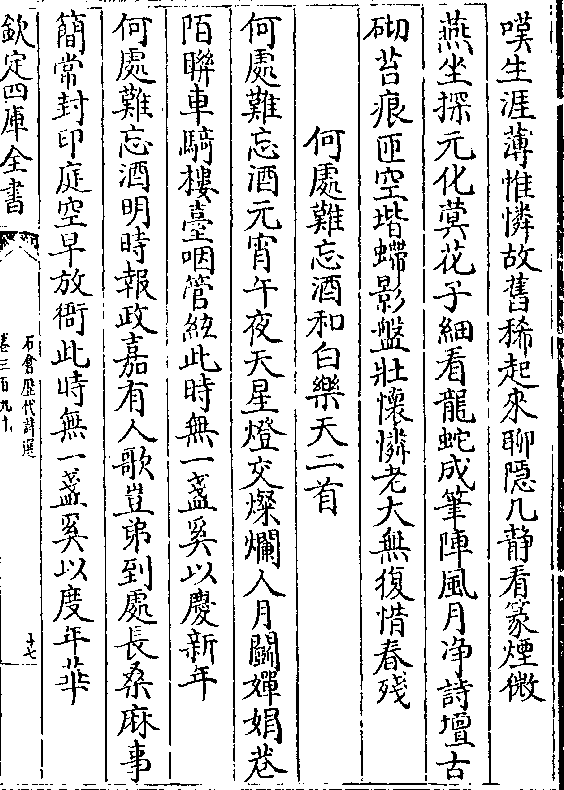 嘆生涯薄惟憐故舊稀起來聊隠几静看篆煙微
燕坐探元化蓂花子細看龍蛇成筆陣風月净詩壇古
砌苔痕匝空堦蟠影盤壯懷憐老大無復惜春殘
何處難忘酒和白樂天二首
何處難忘酒元宵午夜天星燈交燦爛人月鬭嬋娟巷
陌聯車騎樓臺咽管絃此時無一盞奚以慶新年
何處難忘酒明時報政嘉有人歌豈弟到處長桑麻事
簡常封印庭空早放衙此時無一盞奚以度年華
欽定四庫全書
石倉歷代詩選
卷三百九十
十七